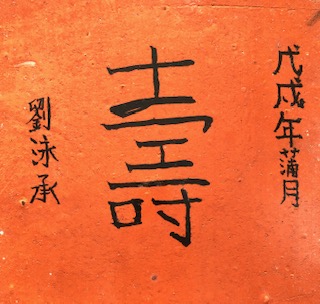 戊戌年蒲月
壽
劉泳承